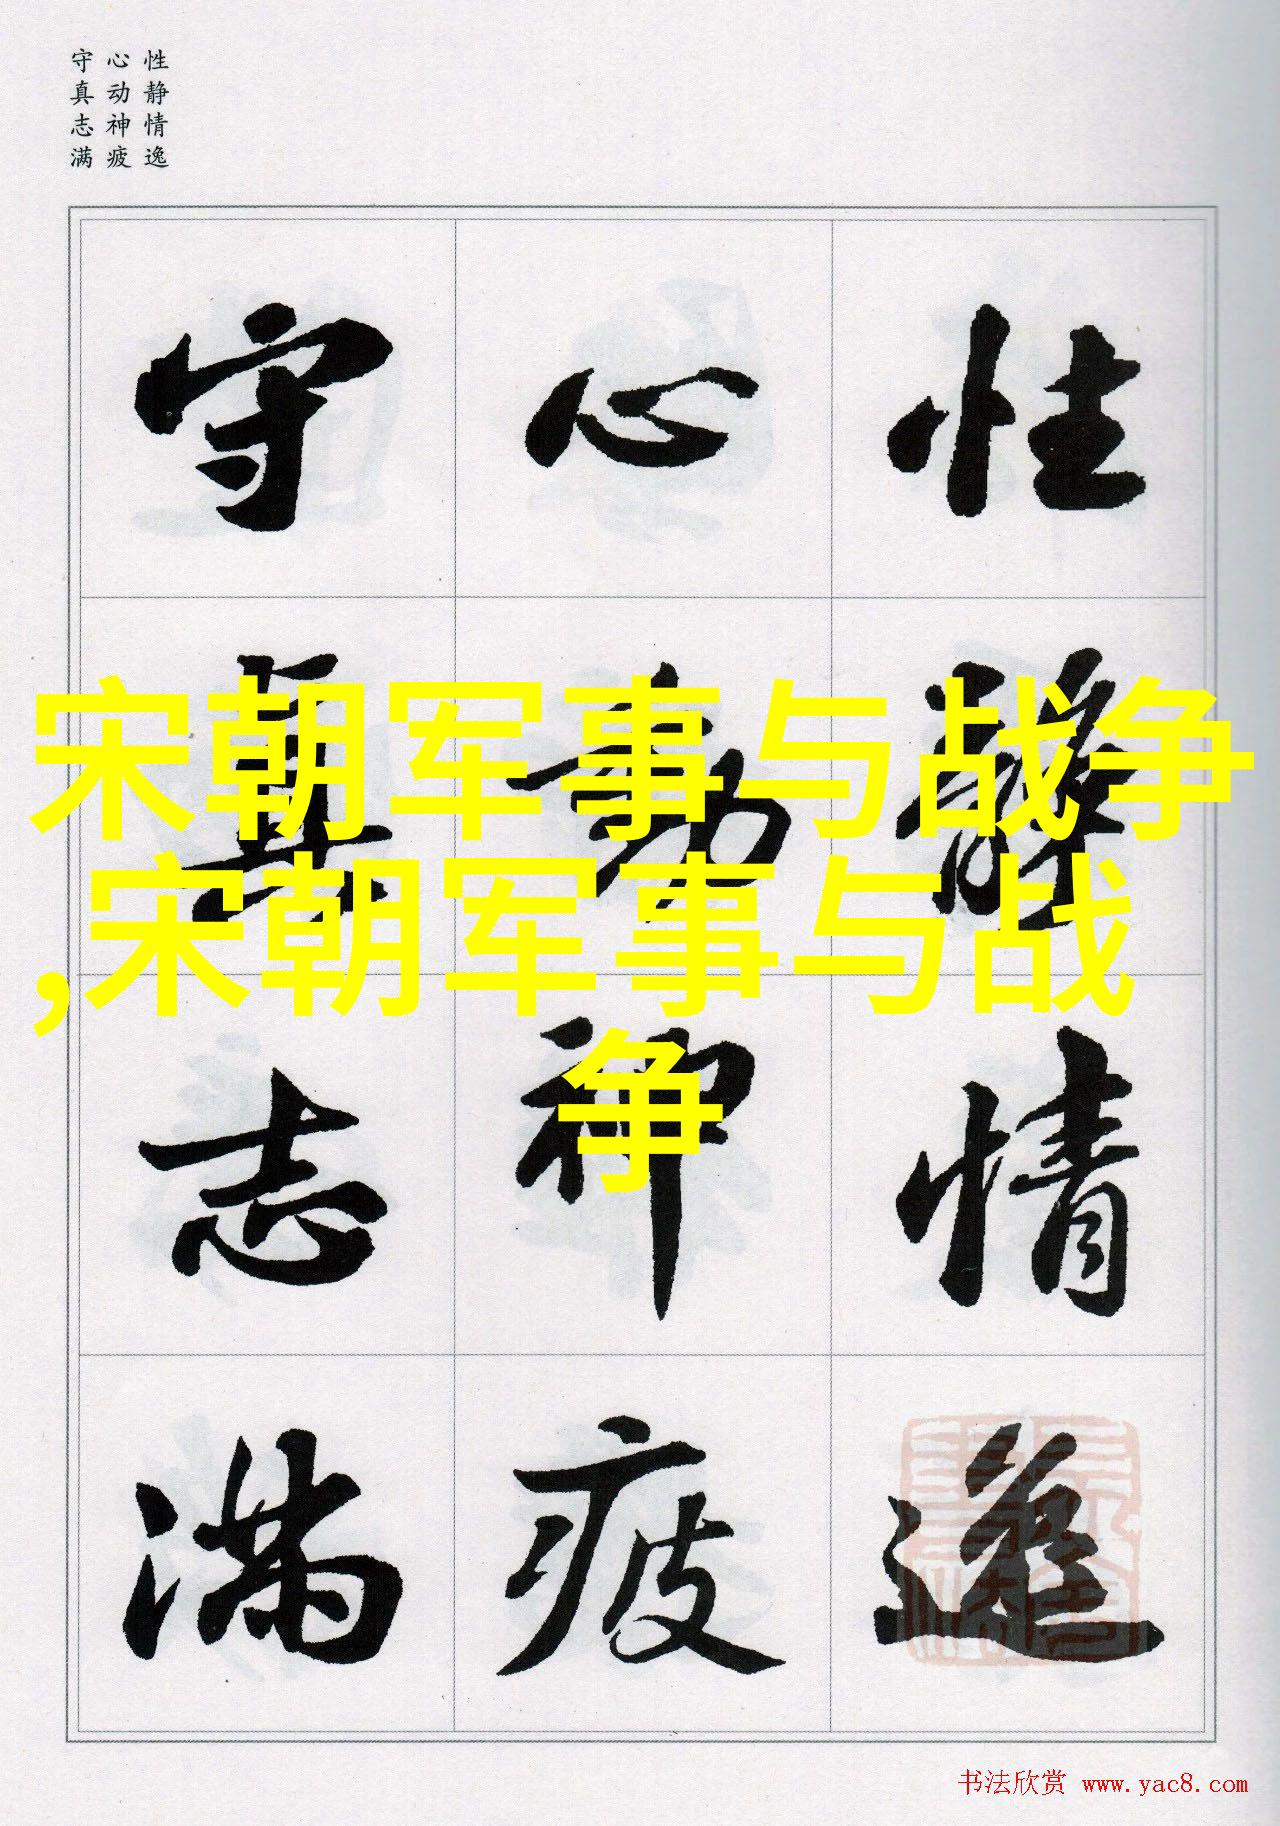 性静情逸
心动神疲
守真志满
性靜情逸
心動神疲
守真志滿
宋朝军事与战争
,宋朝军事与战
争
书法欣赏 www.yac8.com